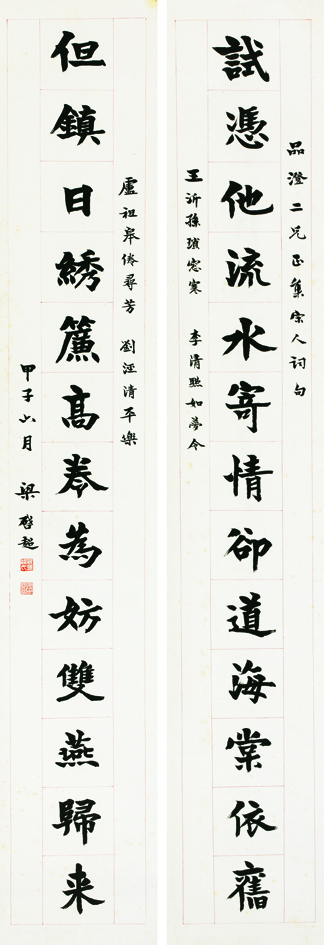 品澄二兄正集宋人詞句
試憑他流水寄情卻道海棠依舊
王沂孫瑣窗寒 李清照如夢令
盧祖皋倦尋芳 劉涇清平樂
但鎮日綉簾髙卷為妨雙燕歸来
甲子六月 梁啓超